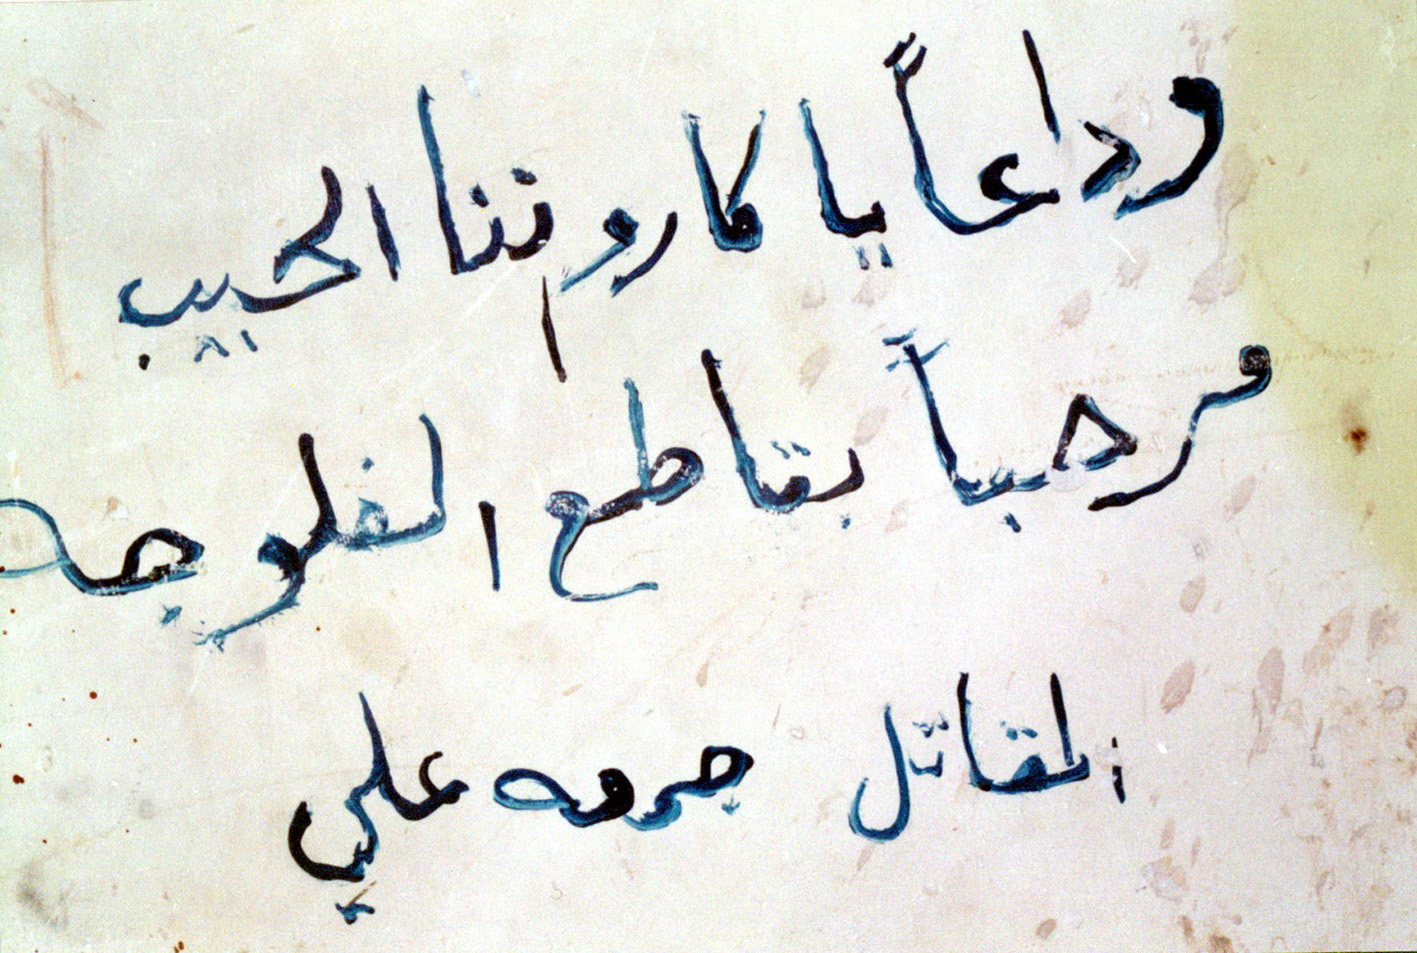 وداعاً يا كاروننا الحبيب
مرحباً بقاطع الفلوجه
المقاتل جمعه علي